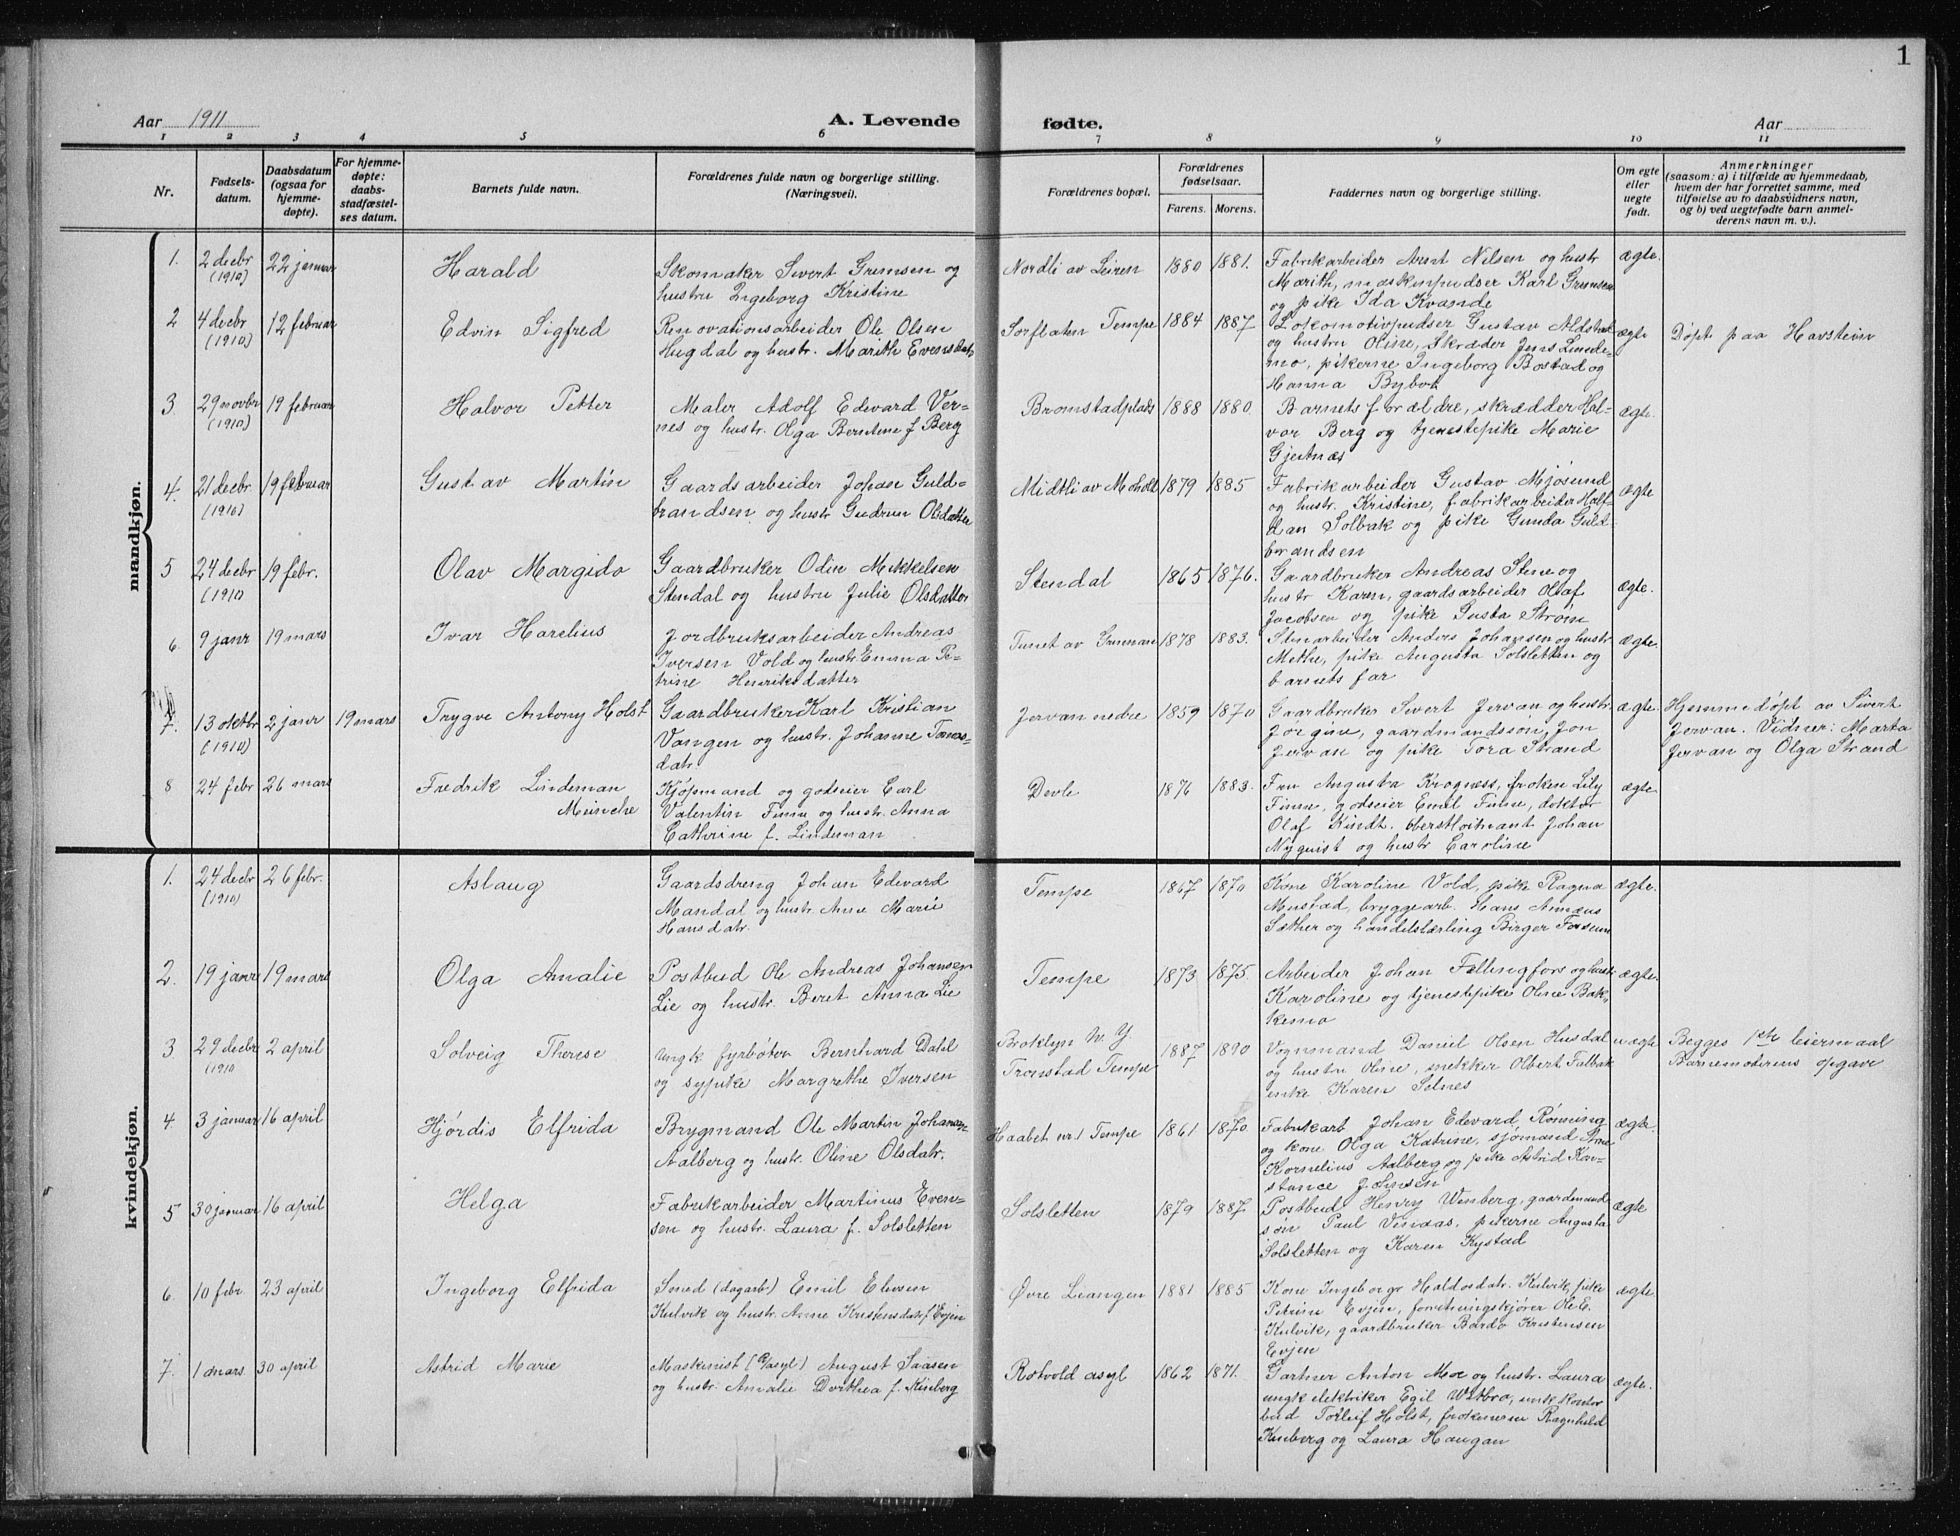 1
Aar 1911
A. Levende
fødte.
Aar
1 2 3 4 5 6 7 8 9 10 11
Nr.
Fødsels-
datum.
Daabsdatum
(ogsaa for
hjemme-
døpte).
For hjemme-
døpte:
daabs-
stadfæstel-
ses datum.
Barnets fulde navn.
Forældrenes fulde navn og borgerlige stilling.
(Næringsveil).
Forældrenes bopæl.
Forældrenes
fødselsaar.
Farens. Morens.
Faddernes navn og borgerlige stilling.
Om egte
eller
uegte
født.
Anmerkninger
(saasom: a) i tilfælde av hjemmedaab,
hvem der har forrettet samme, med
tilføielse av to daabsvidners navn,
og b) ved uegtefødte barn anmel-
derens navn m. v.).
mandkjøn.
1. 2 decbr 22 januar Harald Skomaker Sivert Gremsen og Nordli av Leiren 1880 1881. Fabrikarbeider Arnt Nilsen og hustr ægte
(1910) hustru Ingeborg Kristine Marith, maskinpudser Karl Gremsen
og pike Ida Kvande
2 4 decbr 12 februar Edvin Sigfred Renovationsarbeider Ole Olsen Sorflaten Tempe 1884 1887 Lokomotivpudser Gustav ægte Døpt paa Havstein
(1910) Hugdal og hustr. Marith Evensdatr og hustru Oline, skræder Jens Lunde-
mo, pikerne Ingeborg Bostad og
Hanna
3 29 novbr 19 februar Halvor Petter Maler Adolf Edvard Ver- Bromstadplads 1888 1880. Barnets forældre, skrædder Hal- ægte.
(1910) nes og hustr. Olga Berntine f Berg vor Berg og tjenestepike Marie
Gjertnæs
4. 21 decbr. 19 februar Gustav Martin Gaardsarbeider Johan Guld- Midtli av Moholt 1879 1885 Fabrikarbeider Gustav Mjøsund ægte
(1910) brandsen og hustr Gudrun Olsdatter og hustr. Kristine, fabrikarbeider Half-
dan Solbak og pike Gunda Guld-
brandsen
5 24 decbr 19 febr. Olav Margido Gaardbruker Odin Mikkelsen Stendal 1865 1876. Gaardbruker Andreas Stene og ægte.
(1910 Stendal og hustru Julie Olsdatter hustr Karen, gaardsarbeider Olaf
Jacobsen og pike Gusta Strøm
6 9 janr 19 mars Ivar Harelius Jordbruksarbeider Andreas Tunet av 1878 1883. Stenarbeider Anders Johansen og hustr ægte.
Iversen Vold og hustr Emma Pe- Methe, pike Augusta Solsletten og
trine Henriksdatter barnets far
7. 13 oktbr 2 janr 19 mars Trygve Antony Holst Gaardbruker Karl Kristian Jervan nedre 1859 1870 Gaardbruker Sivert Jervan og hustr ægte Hjemmedøpt av Sivert
(1910) Vangen og hustr. Johanne Tomas- Jørgine, gaardmandssøn Jon Jervan. Vidner: Marta
datr. Jervan og pike Tora Strand Jervan og Olga Strand
8 24 febr 26 mars Fredrik Lindeman Kjøpmand og godseier Carl Devle 1876 1883. Fru Augusta Krogness, frøken Lily ægte.
Meincke Valentin Finne og hustr. Anna Finne, godseier Emil Finne, doktor
Cathrine f. Lindeman Olaf Kindt, oberstløitnant Johan
Nyquist og hustr Caroline
kvindekjøn.
1. 24 decbr 26 febr. Aslaug Gaardsdreng Johan Edvard Tempe 1867 1870 Kone Karoline Vold, pike Ragna ægte.
(1910) Mandal og hustr. Anne Marie Mustad, bryggearb. Hans Annæus
Hansdatr. Sæther og handelslærling Birger
2. 19 janr 19 mars Olga Amalie Postbud Ole Andreas Johansen Tempe 1873 1875. Arbeider Johan Fellingfors og hustr ægte.
Lie og hustr. Beret Anna Lie Karoline og tjenestepike Oline Bak-
kemo
3 29 decbr 2 april Solveig Therese ungk fyrbøter Bernhard Dahl Broklyn N. Y. 1887 1890 Vognmand Daniel Olsen Husdal uægte Begges 1ste leiermaal
(1910 og sypike Margrethe Iversen Tronstad Tempe og hustru Oline, snekker Olbert Falbak Barnemoderens opgave
enke Karen Solnes
4 3 januar 16 april Hjørdis Elfrida Brygmand Ole Martin Johansen Haabet nr. 1 Tempe 1861 1870. Fabrikarb Johan Edvard Rønning ægte.
Aalberg og hustr. Oline Olsdatr. og kone Olga Katrine, sjømand Arne
Kornelius Aalberg og pike Astrid Kon-
stance Johnsen
5 30 januar 16 april Helga Fabrikarbeider Martinus Even- Solsletten 1879 1887. Postbud Henry Winberg, gaardmand ægte
sen og hustr. Laura f. Solsletten søn Paul Vinaas, pikerne Augusta
Solsletten og Karen Kystad
6. 10 febr. 23 april Ingeborg Elfrida Smed (dagarb) Emil Elvesen Øvre Leangen 1881 1885 Kone Ingeborg Haldosdatr. Kulvik, pike ægte.
Kulvik og hustr. Anne Kristensdatr f Evjen Petrine Evjen, forretningskjører Ole E.
Kulvik, gaardbruker Bardo Kristensen
Evjen
7. 1 mars. 30 april Astrid Marie Maskinist (asyl) August Saasen Rotvold asyl 1862 1871. Gartner Anton Moe og hustr. Laura ægte.
og hustr. Amalie Dorthea f. Kinberg ungk elektriker Egil, ungk kontor
bud Torleif Holst, frøknerne Ragnhild
Kinberg og Laura Haugan